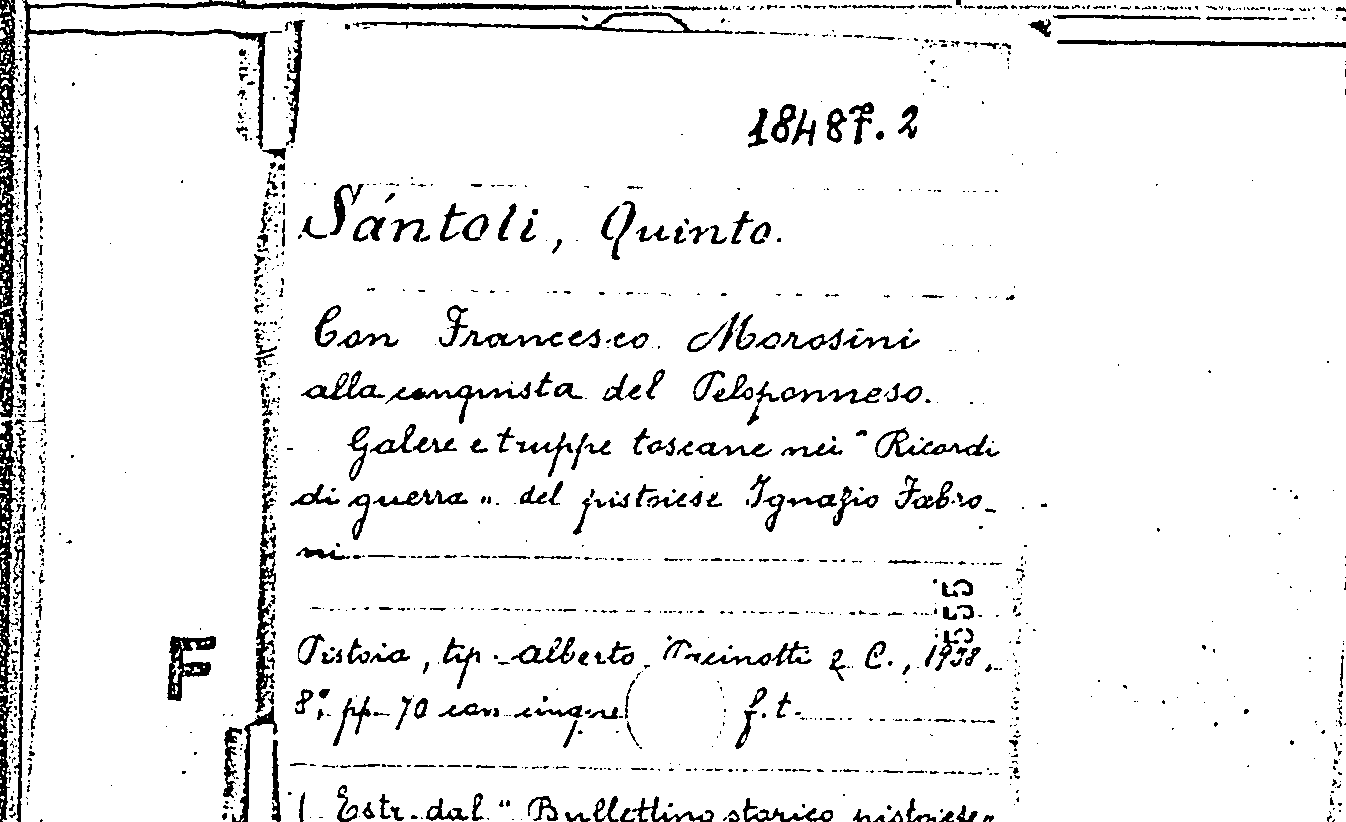 18487.2
Sántoli, Quinto.
Con Francesco Morosini
alla conquista del Peloponneso.
Galere e truppe toscane nei "Ricordi
di guerra" del pistoiese Ignazio Fabro-
ni
555
Pistoia, tip. Alberto Pacinotti & C., 1938.
F
8°, pp. 70 con cinque f.t.
( Estr. dal "Bullettino storico pistoiese"